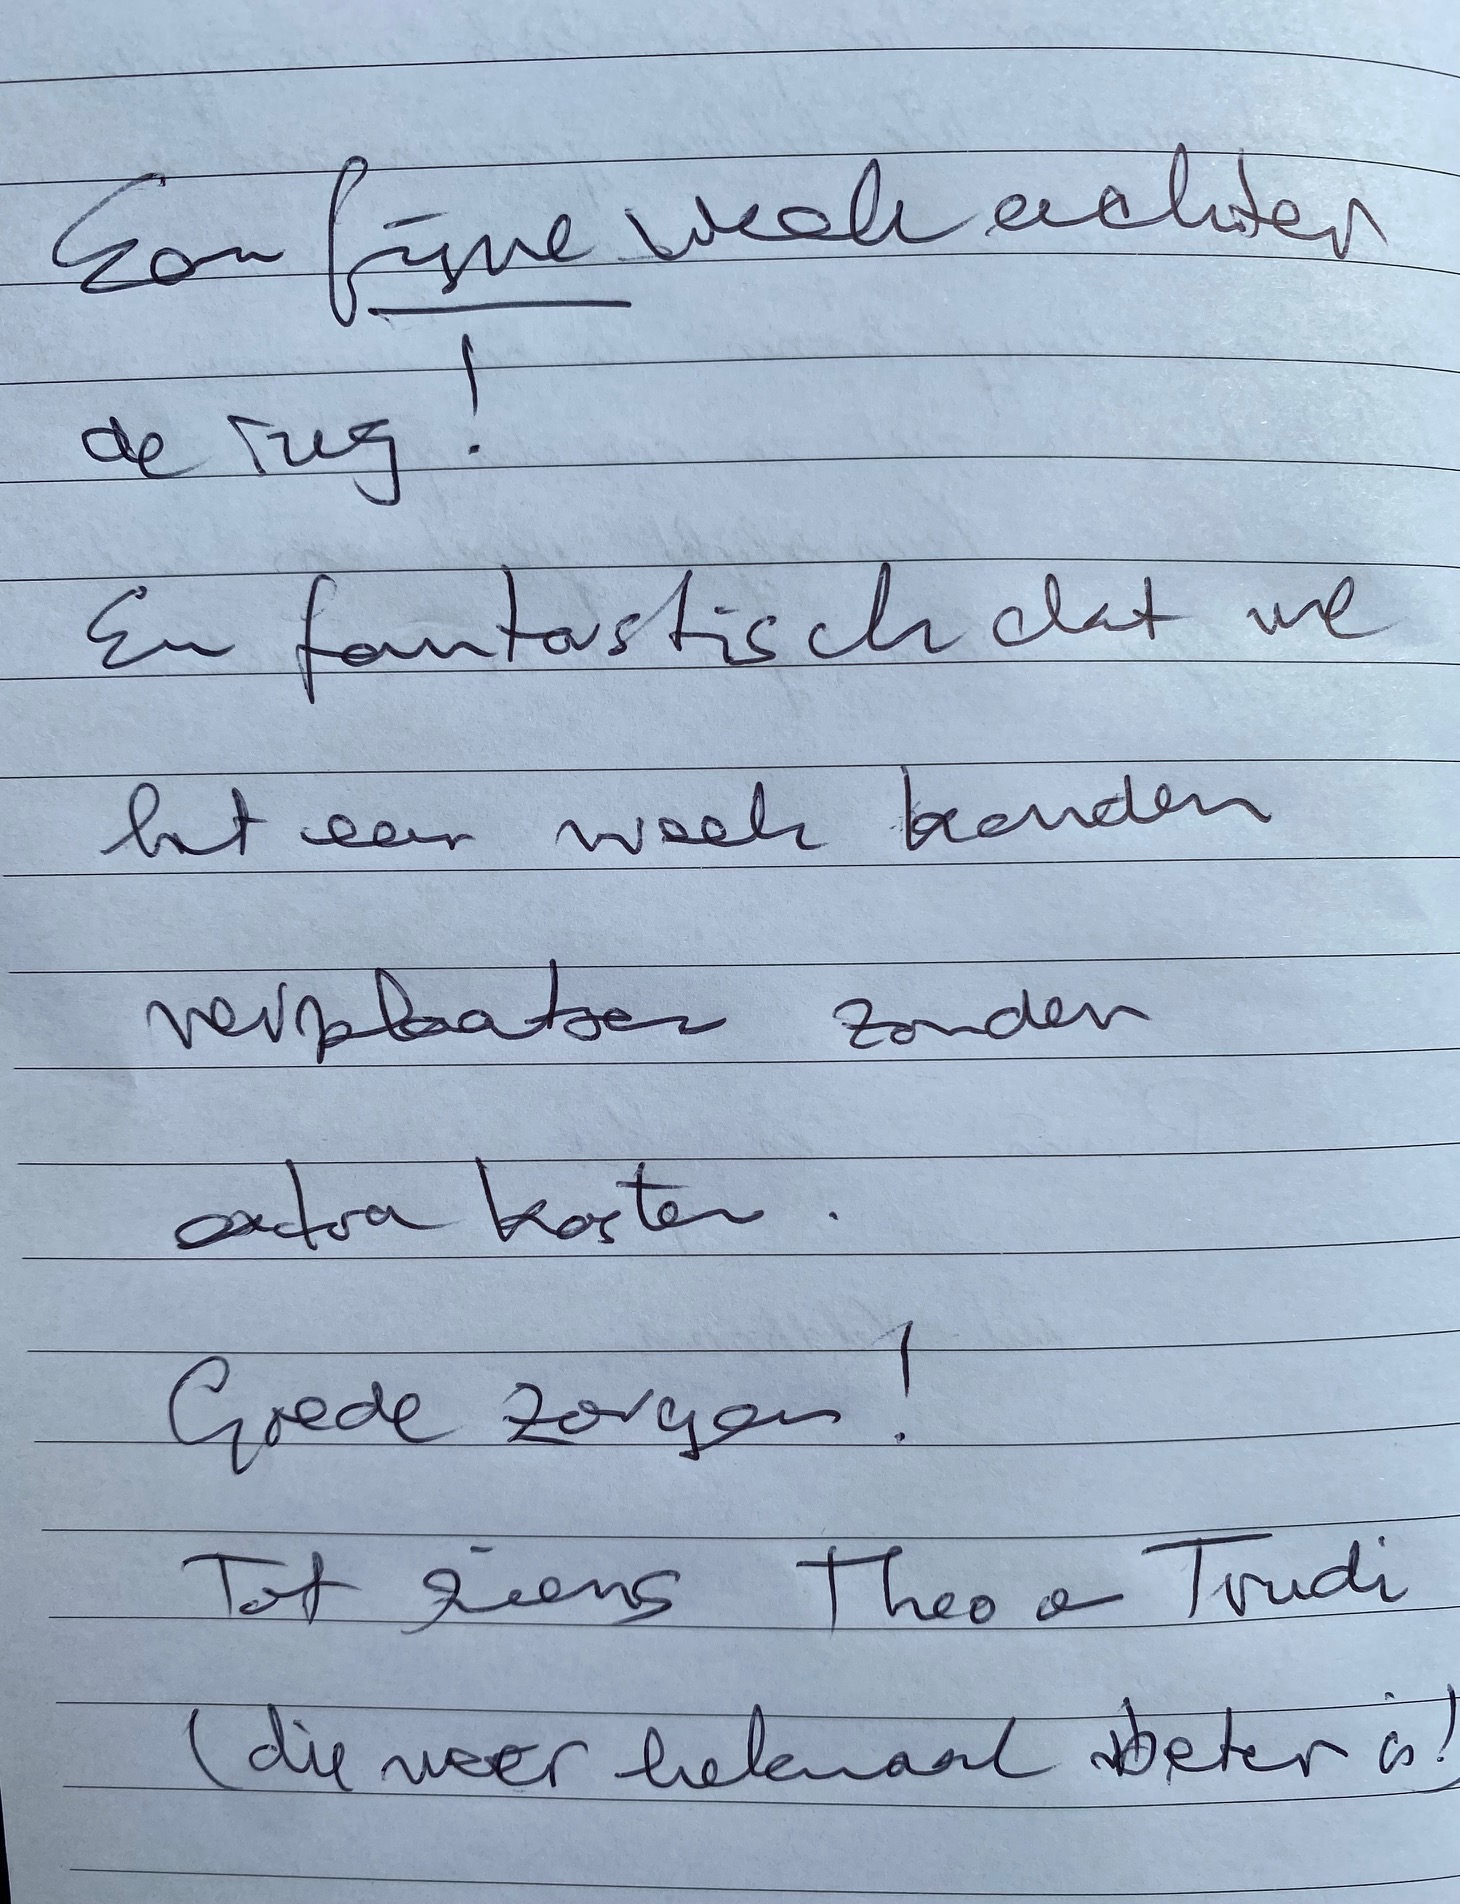 Een fijne week achter
de rug!
En fantastisch dat we
het een week konden
verplaatsen zonder
extra kosten.
Goede zorgen!
Tot ziens Theo en Trudi
(die weer helemaal beter is!)